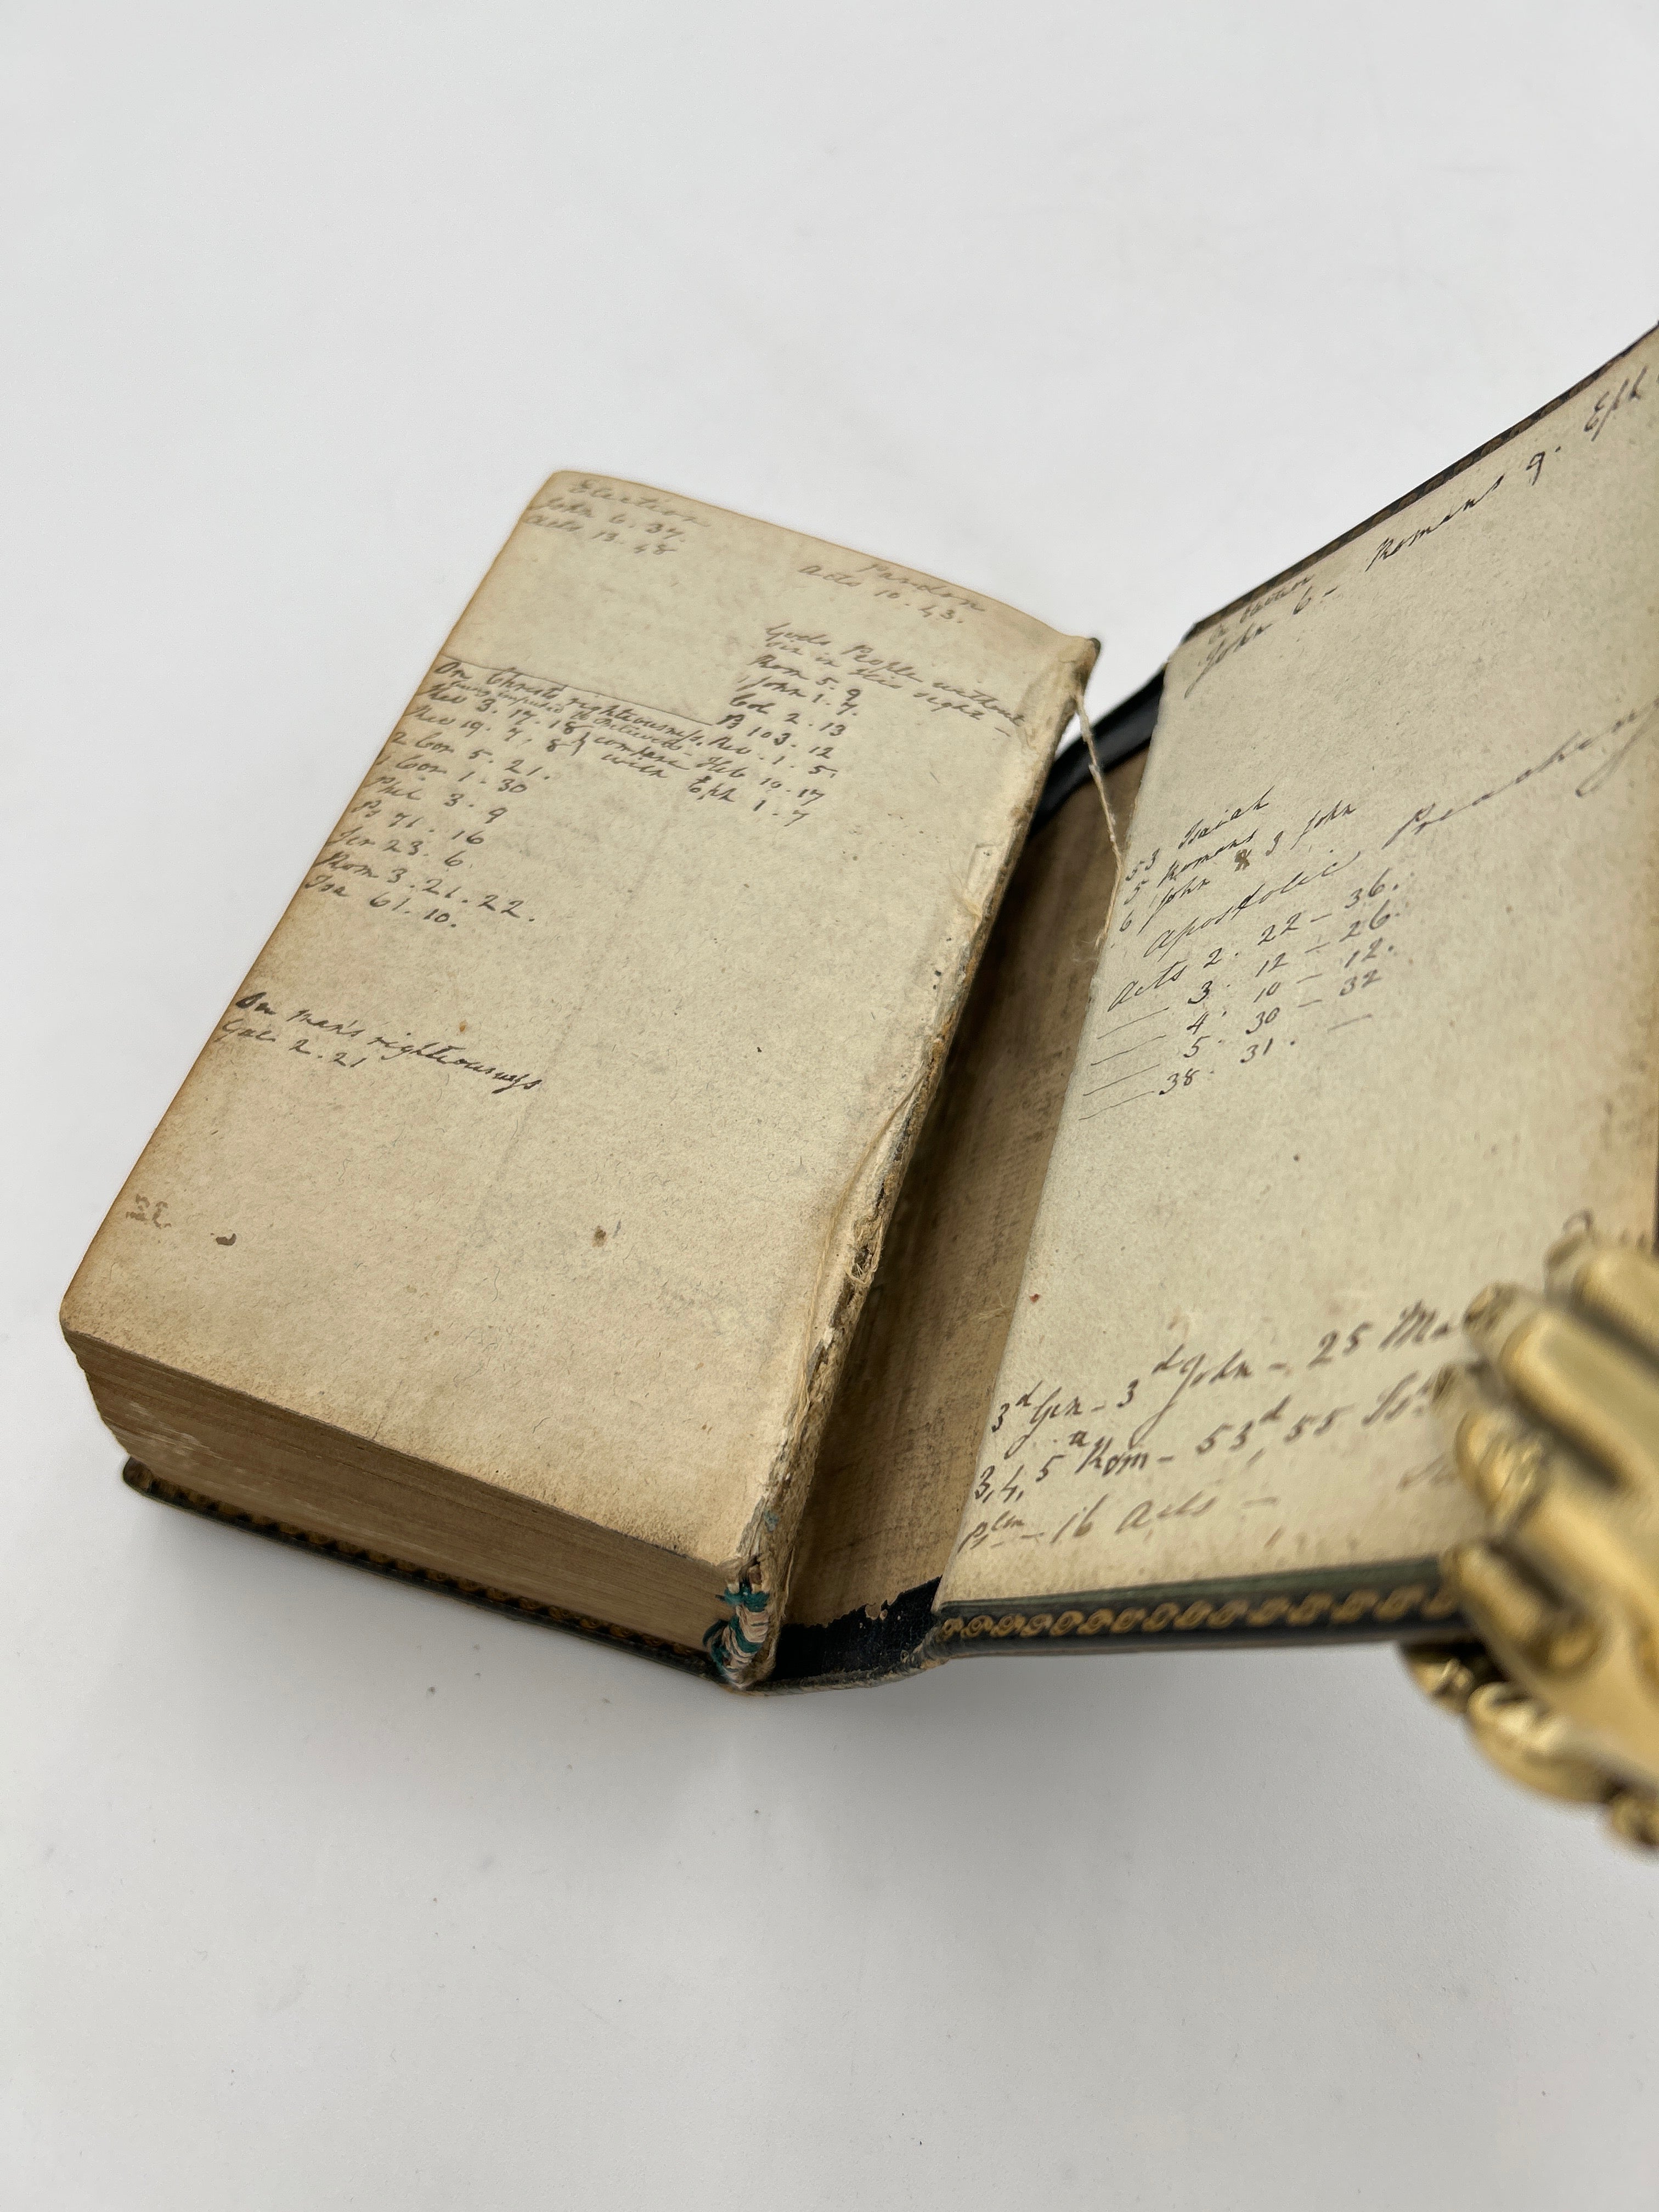 Election
John 6. 37.
Acts. 13. 48
Pardon
Acts 10. 43.
Gods People without
sin in His sight –
Rom 5. 9
1 John 1. 7.
Col 2. 13
Ps 103. 12
Rev. 1. 5.
Heb 10. 17
Eph 1. 7
On Christs righteousness.
being imputed to Believers –
Rev 3. 17. 18 } compare
Rev 19. 7. 8 } with
2 Cor 5. 21.
1 Cor 1. 30
Phil 3. 9
Ps 71. 16
Jer 23. 6
Rom 3. 21. 22.
Isa 61. 10.
On man's righteousness
Gal. 2. 21
John 6 – Romans 9. Eph
53 Isaiah
5 Romans
6 John & 3 John
Apostolic Preaching
Acts 2. 22 – 36.
— 3. 12 – 26.
— 4. 10 – 12.
— 5. 30 – 32
— 38. 31. —
3d Gen – 3d John – 25
3, 4, 5 Rom – 53d, 55
Psm – 16 Acts –